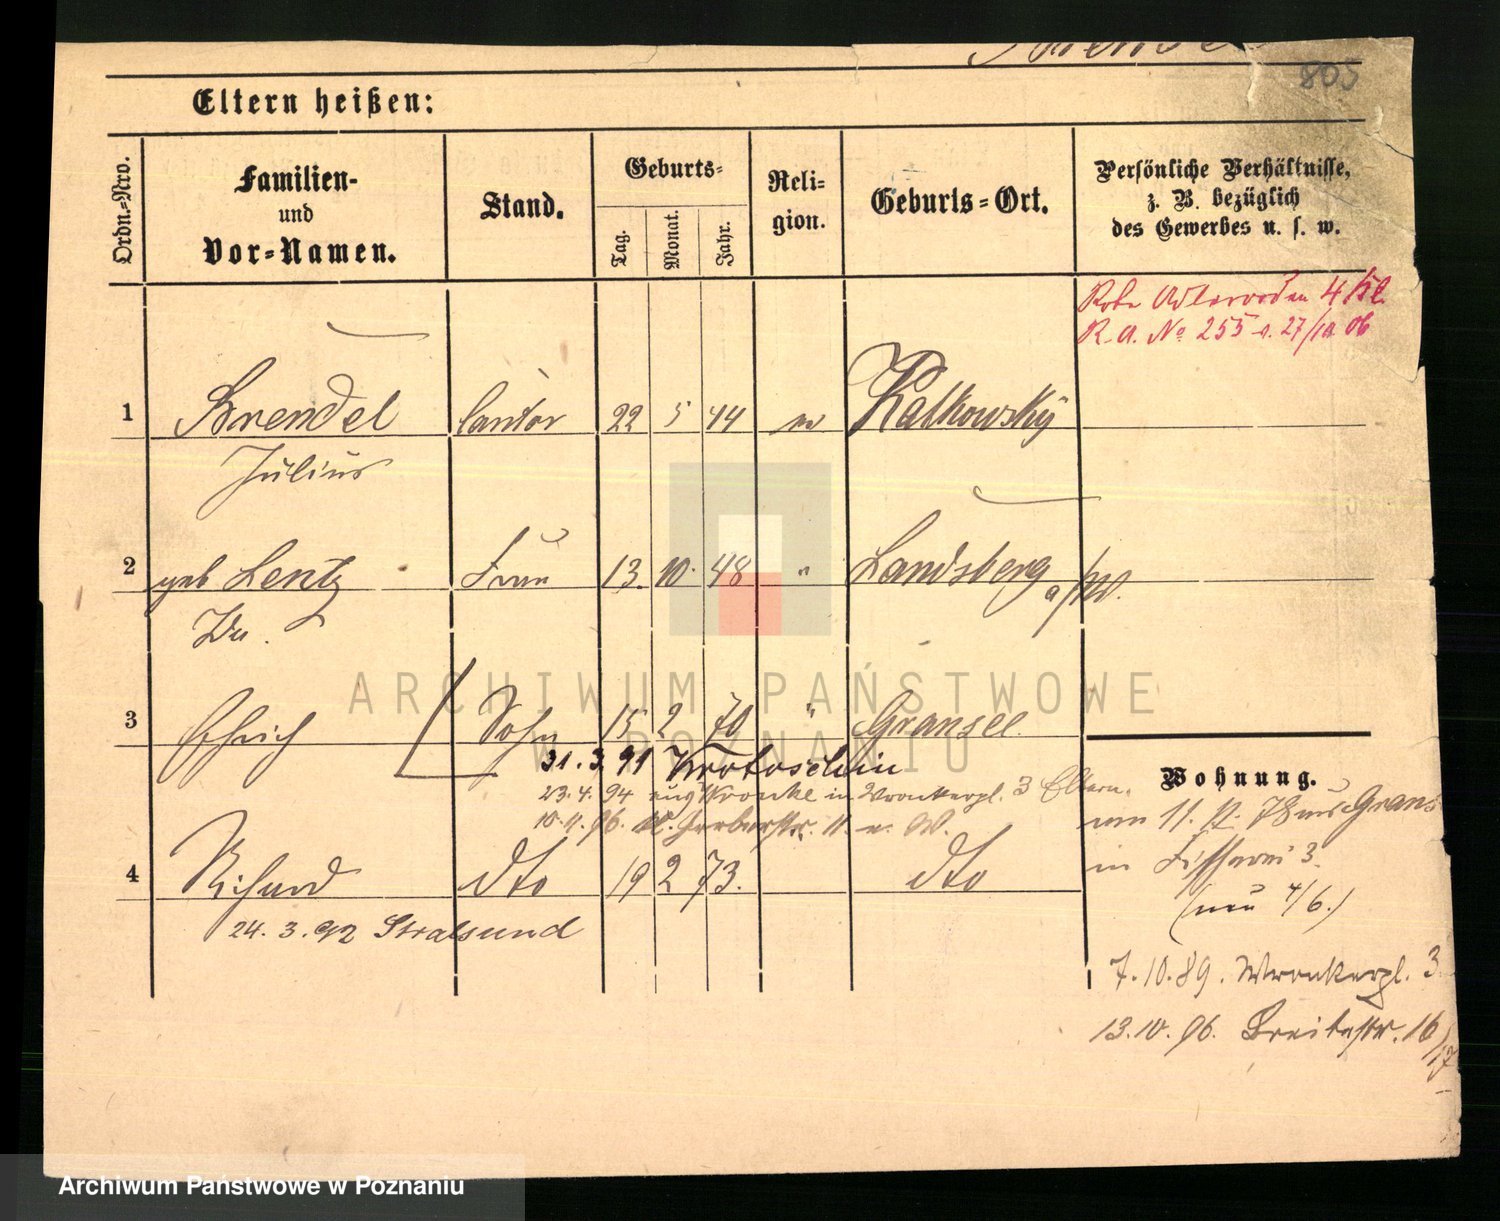 803
Eltern heißen:
Ordn.-Nro.
Familien-
und
Vor-Namen.
Stand.
Geburts-
Tag.
Monat.
Jahr.
Reli-
gion.
Geburts-Ort.
Persönliche Verhältnisse,
z. B. bezüglich
des Gewerbes u. s. w.
Rother Adlerorden 4 Kl.
R. A. No 255 v. 27/10 06
1 Brendel Cantor 22 5 44 ev Kalkowsky
Julius
2 geb Lentz Frau 13. 10. 48 " Landsberg a/W.
3 Ehrich Sohn 15 2 70 " Gransee.
31. 3. 91 Krotoschin
23. 4. 94 in Wronkerpl. 3 Eltern.
10. 11. 96. Gerberstr. 11
4 Richard dto 19 2 73. dto
24. 3. 92 Stralsund
Wohnung.
in Fischerei 3.
(neu 4/6.)
7. 10. 89. Wronkerpl. 3
13. 10. 96. Breitestr. 16/17
ARCHIWUM PAŃSTWOWE
W POZNANIU
Archiwum Państwowe w Poznaniu